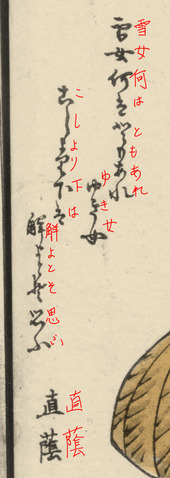 雪女何はともあれ
ゆき女
こしより下は
解よとそ思ふ
直蔭
雪女何はともあれ
ゆき女
こしより下は
解よとそ思ふ
直蔭